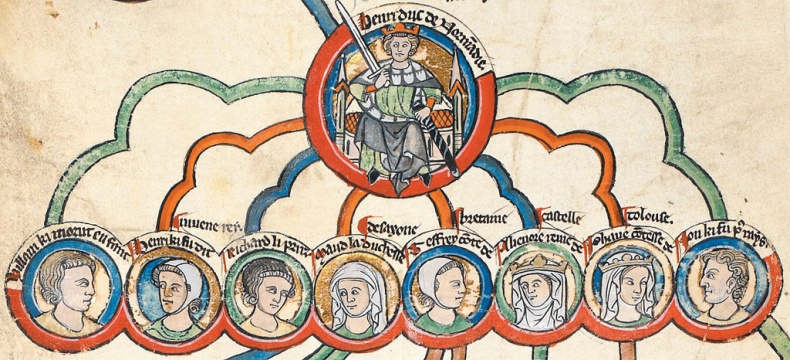 Henri duc de Normādie.
Willam ki morut en
Henri ki fu dit
iuuene rei.
Richard li
Maud la duchesse
de saxone
Geffrey cōte de
bretaine
Alienore reine de
castelle
Johane cōtesse de
tolouse.
Jon ki fu